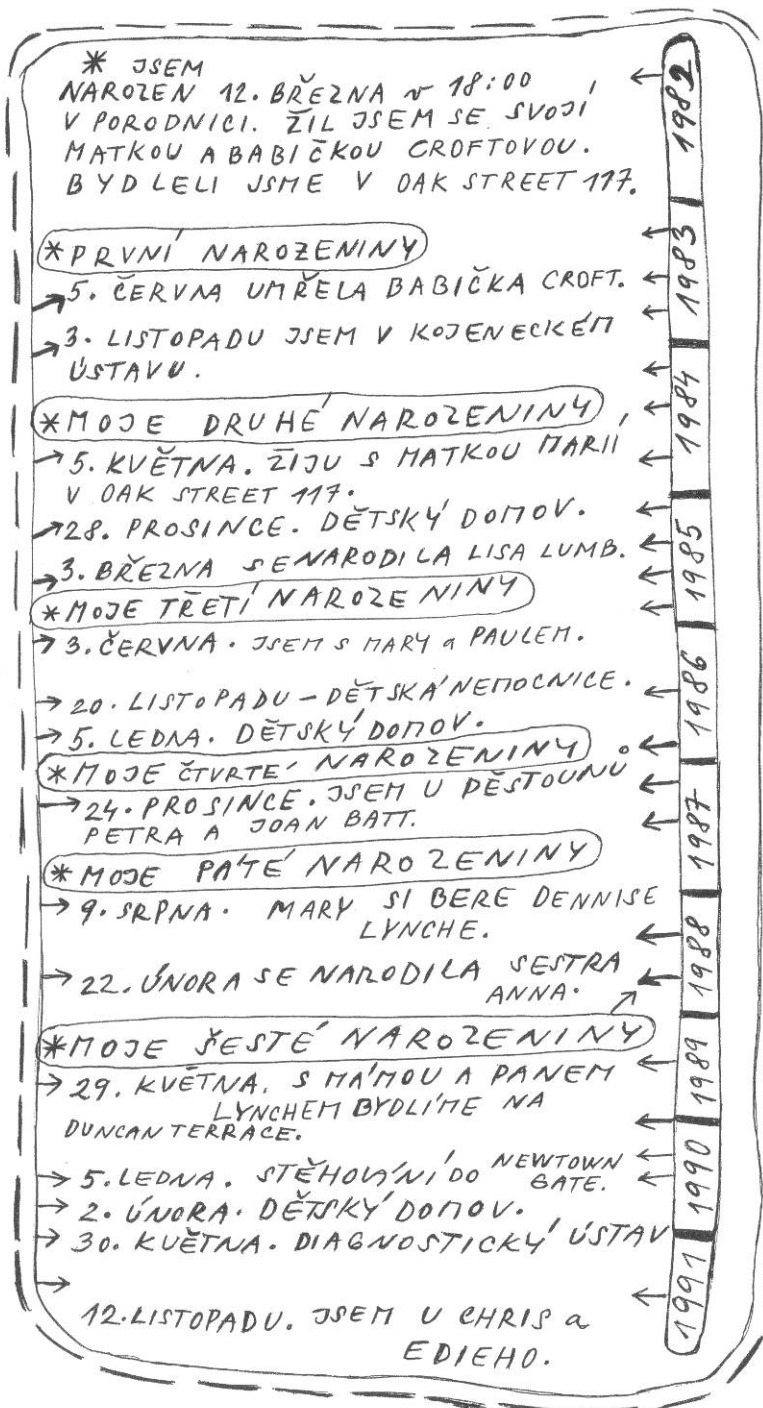 * JSEM
NAROZEN 12. BŘEZNA v 18:00
V PORODNICI. ŽIL JSEM SE SVOJÍ
MATKOU A BABIČKOU CROFTOVOU.
BYDLELI JSME V OAK STREET 117.
*PRVNÍ NAROZENINY
5. ČERVNA UMŘELA BABIČKA CROFT.
3. LISTOPADU JSEM V KOJENECKÉM
ÚSTAVU.
*MOJE DRUHÉ NAROZENINY
5. KVĚTNA. ŽIJU S MATKOU MARII
V OAK STREET 117.
28. PROSINCE. DĚTSKÝ DOMOV.
3. BŘEZNA SE NARODILA LISA LUMB.
*MOJE TŘETÍ NAROZENINY
3. ČERVNA. JSEM S MARY a PAULEM.
20. LISTOPADU - DĚTSKÁ NEMOCNICE.
5. LEDNA. DĚTSKÝ DOMOV.
*MOJE ČTVRTÉ NAROZENINY
24. PROSINCE. JSEM U PĚSTOUNŮ
PETRA A JOAN BATT.
*MOJE PÁTÉ NAROZENINY
9. SRPNA. MARY SI BERE DENNISE
LYNCHE.
22. ÚNORA SE NARODILA SESTRA
ANNA.
*MOJE ŠESTÉ NAROZENINY
29. KVĚTNA. S MÁMOU A PANEM
LYNCHEM BYDLÍME NA
DUNCAN TERRACE.
5. LEDNA. STĚHOVÁNÍ DO NEWTOWN
GATE.
2. ÚNORA. DĚTSKÝ DOMOV.
30. KVĚTNA. DIAGNOSTICKÝ ÚSTAV
12. LISTOPADU. JSEM U CHRIS a
EDIEHO.
1982
1983
1984
1985
1986
1987
1988
1989
1990
1991